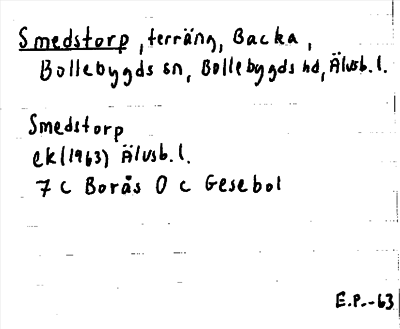 Smedstorp, terräng, Backa,
Bollebygds sn, Bollebygds hd, Älvsb. l.
Smedstorp
ek (1963) Älvsb. l.
7 C Borås 0 c Gesebol
E.P.-63